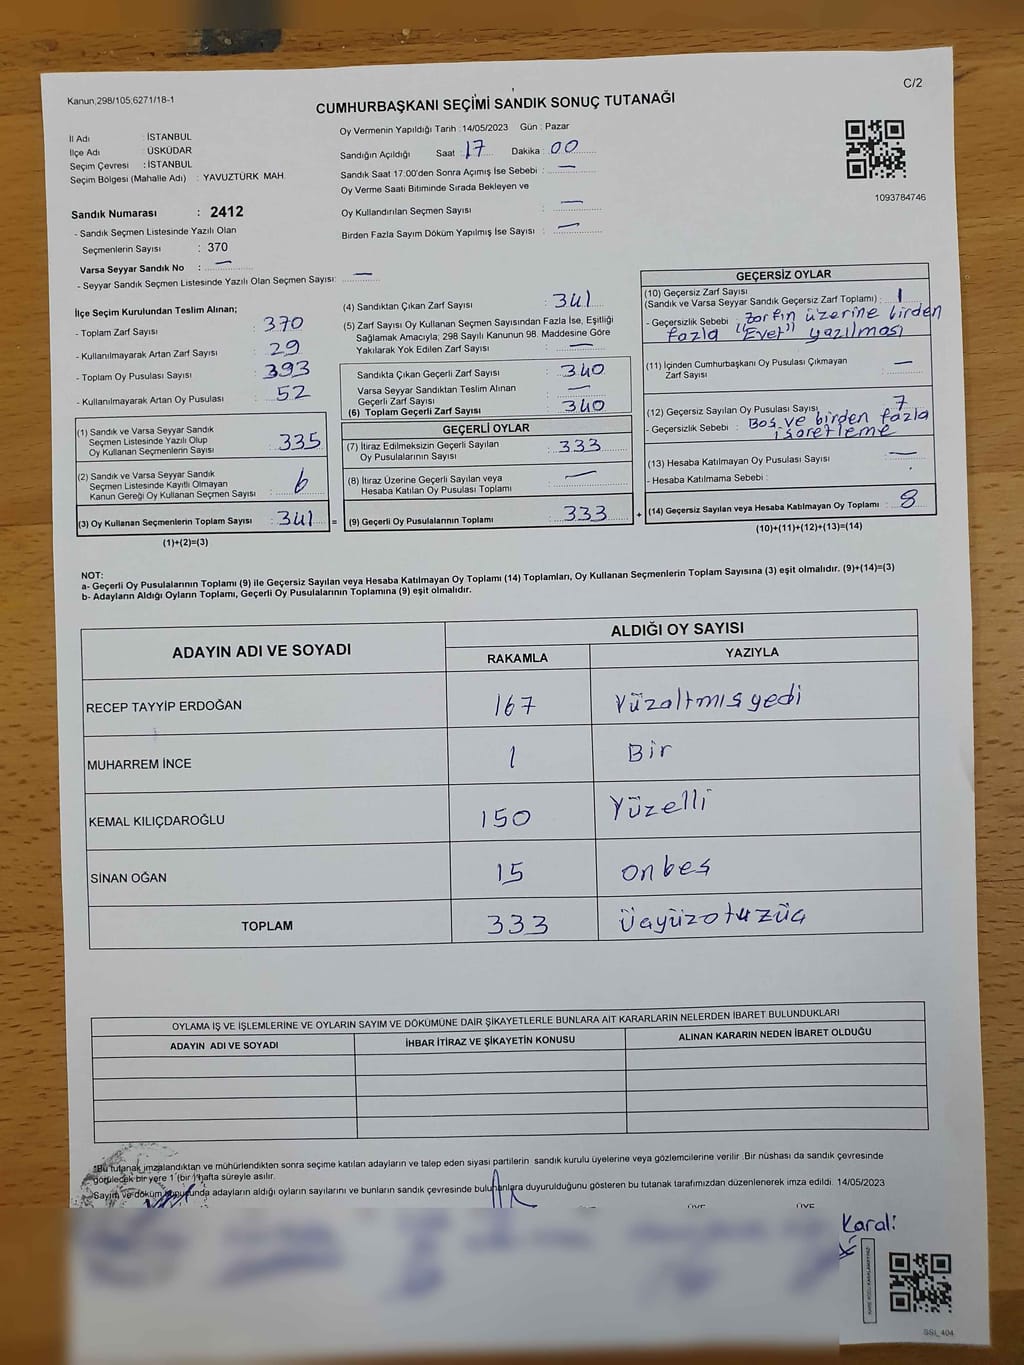 Kanun,298/105,6271/18-1
C/2
CUMHURBAŞKANI SEÇİMİ SANDIK SONUÇ TUTANAĞI
İl Adı : İSTANBUL
İlçe Adı : ÜSKÜDAR
Seçim Çevresi : İSTANBUL
Seçim Bölgesi (Mahalle Adı) : YAVUZTÜRK MAH.
Oy Vermenin Yapıldığı Tarih :14/05/2023 Gün : Pazar
Sandığın Açıldığı Saat : 17 Dakika : 00
Sandık Saat 17:00'den Sonra Açımış İse Sebebi : —
Oy Verme Saati Bitiminde Sırada Bekleyen ve
Oy Kullandırılan Seçmen Sayısı : —
Birden Fazla Sayım Döküm Yapılmış İse Sayısı : —
1093784746
Sandık Numarası : 2412
- Sandık Seçmen Listesinde Yazılı Olan
Seçmenlerin Sayısı : 370
Varsa Seyyar Sandık No : —
- Seyyar Sandık Seçmen Listesinde Yazılı Olan Seçmen Sayısı: —
İlçe Seçim Kurulundan Teslim Alınan;
- Toplam Zarf Sayısı : 370
- Kullanılmayarak Artan Zarf Sayısı : 29
- Toplam Oy Pusulası Sayısı : 393
- Kullanılmayarak Artan Oy Pusulası : 52
(1) Sandık ve Varsa Seyyar Sandık
Seçmen Listesinde Yazılı Olup
Oy Kullanan Seçmenlerin Sayısı : 335
(2) Sandık ve Varsa Seyyar Sandık
Seçmen Listesinde Kayıtlı Olmayan
Kanun Gereği Oy Kullanan Seçmen Sayısı : 6
(3) Oy Kullanan Seçmenlerin Toplam Sayısı : 341 =
(1)+(2)=(3)
(4) Sandıktan Çıkan Zarf Sayısı : 341
(5) Zarf Sayısı Oy Kullanan Seçmen Sayısından Fazla İse, Eşitliği
Sağlamak Amacıyla; 298 Sayılı Kanunun 98. Maddesine Göre
Yakılarak Yok Edilen Zarf Sayısı : —
Sandıkta Çıkan Geçerli Zarf Sayısı : 340
Varsa Seyyar Sandıktan Teslim Alınan
Geçerli Zarf Sayısı : —
(6) Toplam Geçerli Zarf Sayısı : 340
GEÇERLİ OYLAR
(7) İtiraz Edilmeksizin Geçerli Sayılan
Oy Pusulalarının Sayısı : 333
(8) İtiraz Üzerine Geçerli Sayılan veya
Hesaba Katılan Oy Pusulası Toplamı : —
(9) Geçerli Oy Pusulalarının Toplamı : 333 +
GEÇERSİZ OYLAR
(10) Geçersiz Zarf Sayısı
(Sandık ve Varsa Seyyar Sandık Geçersiz Zarf Toplamı) : 1
- Geçersizlik Sebebi : zarfın üzerine birden
fazla "Evet" yazılması
(11) İçinden Cumhurbaşkanı Oy Pusulası Çıkmayan
Zarf Sayısı : —
(12) Geçersiz Sayılan Oy Pusulası Sayısı : 7
- Geçersizlik Sebebi : Boş ve birden fazla
işaretleme
(13) Hesaba Katılmayan Oy Pusulası Sayısı : —
- Hesaba Katılmama Sebebi :
(14) Geçersiz Sayılan veya Hesaba Katılmayan Oy Toplamı : 8
(10)+(11)+(12)+(13)=(14)
NOT:
a- Geçerli Oy Pusulalarının Toplamı (9) ile Geçersiz Sayılan veya Hesaba Katılmayan Oy Toplamı (14) Toplamları, Oy Kullanan Seçmenlerin Toplam Sayısına (3) eşit olmalıdır. (9)+(14)=(3)
b- Adayların Aldığı Oyların Toplamı, Geçerli Oy Pusulalarının Toplamına (9) eşit olmalıdır.
ADAYIN ADI VE SOYADI ALDIĞI OY SAYISI
RAKAMLA YAZIYLA
RECEP TAYYİP ERDOĞAN 167 Yüzaltmış yedi
MUHARREM İNCE 1 Bir
KEMAL KILIÇDAROĞLU 150 Yüzelli
SİNAN OĞAN 15 onbeş
TOPLAM 333 Üçyüzotuzüç
OYLAMA İŞ VE İŞLEMLERİNE VE OYLARIN SAYIM VE DÖKÜMÜNE DAİR ŞİKAYETLERLE BUNLARA AİT KARARLARIN NELERDEN İBARET BULUNDUKLARI
ADAYIN ADI VE SOYADI İHBAR İTİRAZ VE ŞİKAYETİN KONUSU ALINAN KARARIN NEDEN İBARET OLDUĞU
*Bu tutanak imzalandıktan ve mühürlendikten sonra seçime katılan adayların ve talep eden siyasi partilerin sandık kurulu üyelerine veya gözlemcilerine verilir. Bir nüshası da sandık çevresinde
görülecek bir yere 1 (bir) hafta süreyle asılır.
Sayım ve döküm sonucunda adayların aldığı oyların sayılarını ve bunların sandık çevresinde bulunanlara duyurulduğunu gösteren bu tutanak tarafımızdan düzenlenerek imza edildi. 14/05/2023
ÜYE ÜYE
Karal:
SSI_404